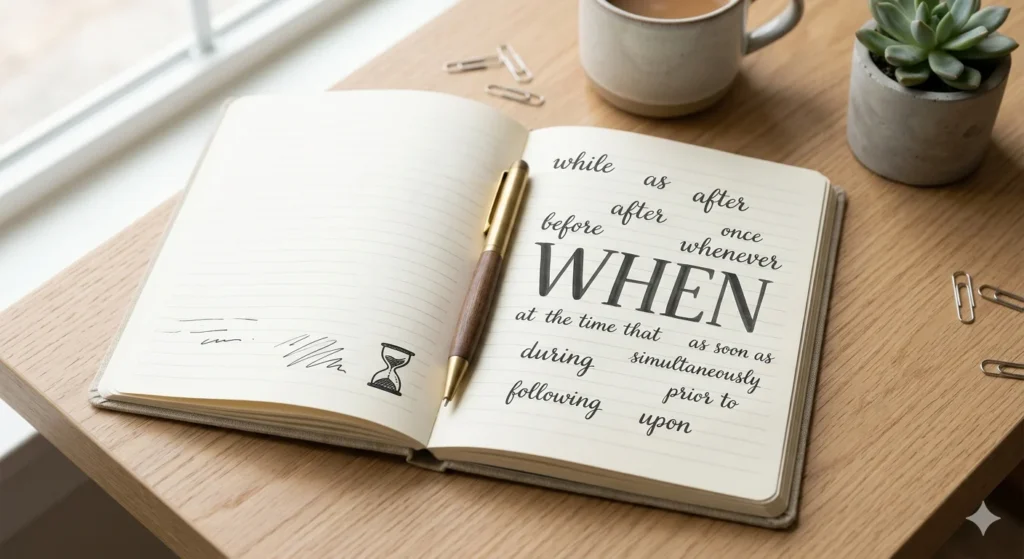 while as after
after once
before whenever
WHEN
at the time that as soon as
during simultaneously
following prior to
upon